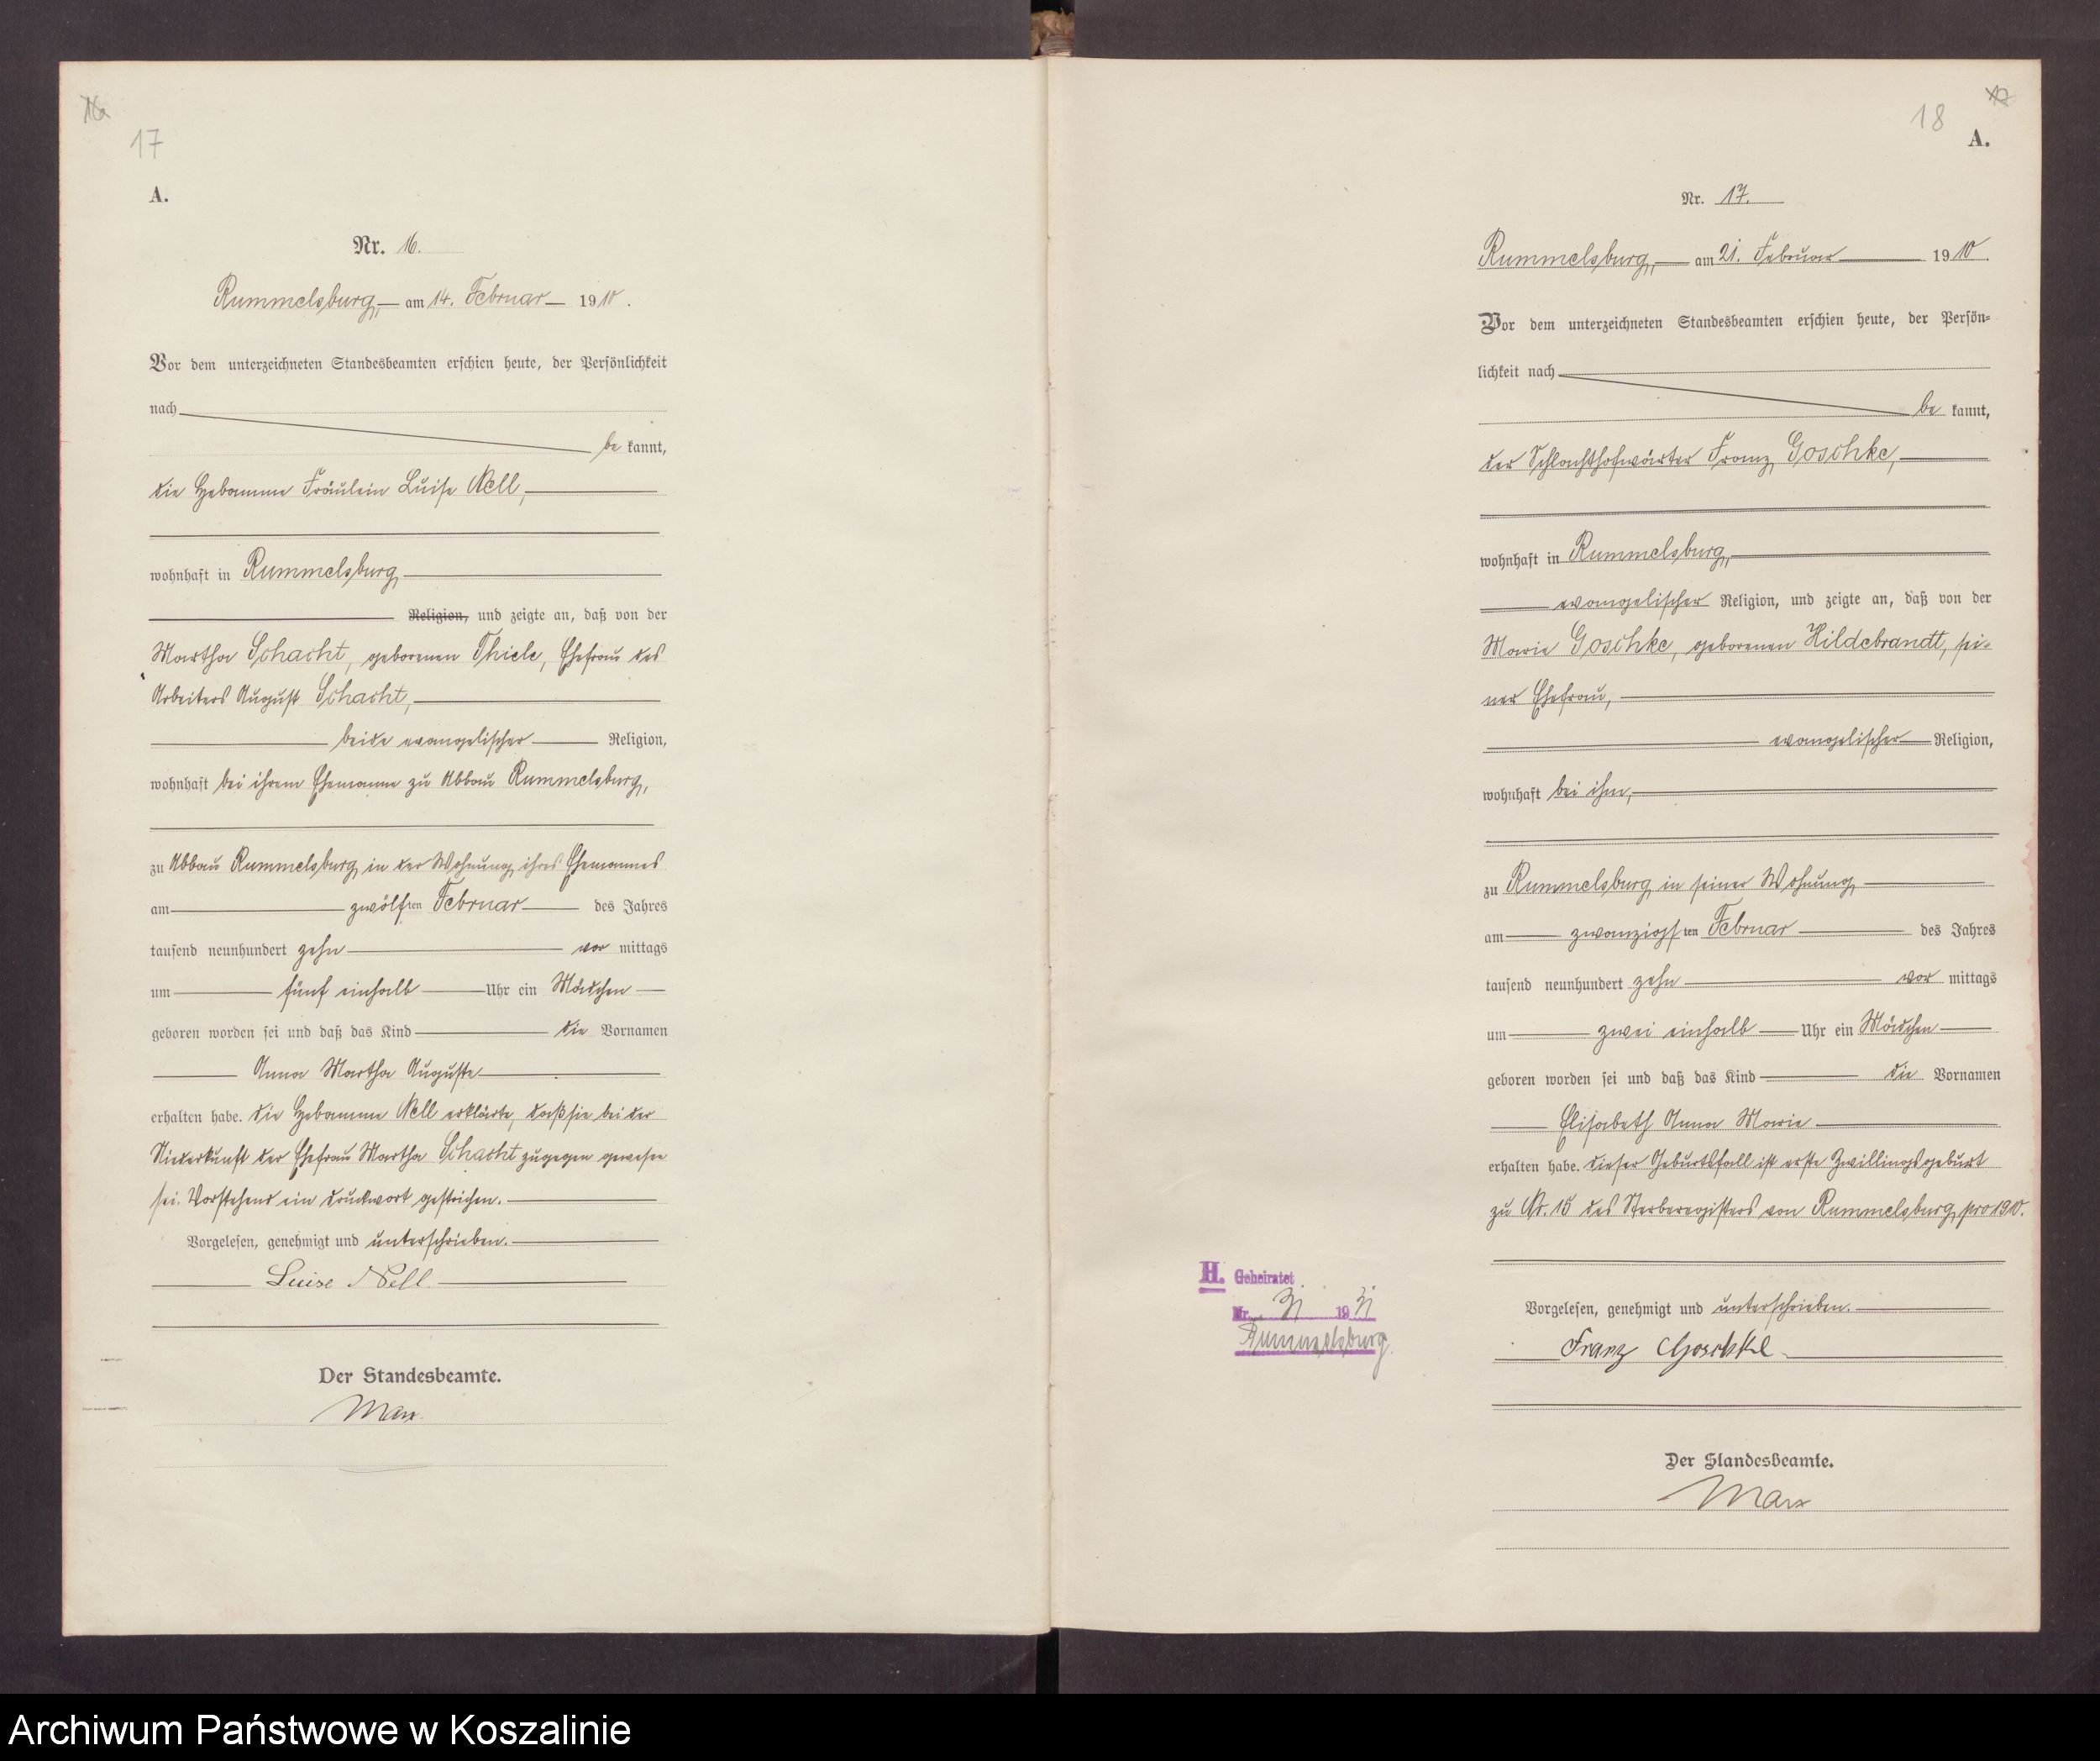 17
A.
Nr. 16.
Rummelsburg, am 14. Februar 1910.
Vor dem unterzeichneten Standesbeamten erschien heute, der Persönlichkeit
nach
be kannt,
die Hebamme Fräulein Luise Nell,
wohnhaft in Rummelsburg
Religion, und zeigte an, daß von der
Martha Schacht, geborenen Thiele, Ehefrau des
Arbeiters August Schacht,
beide evangelischer Religion,
wohnhaft bei ihrem Ehemanne zu Abbau Rummelsburg,
zu Abbau Rummelsburg in der Wohnung ihres Ehemannes
am zwölften Februar des Jahres
tausend neunhundert zehn vor mittags
um fünf einhalb Uhr ein Mädchen
geboren worden sei und daß das Kind die Vornamen
Anna Martha Auguste
erhalten habe. Die Hebamme Nell erklärte, daß sie bei der
Niederkunft der Ehefrau Martha Schacht zugegen gewesen
sei. Vorstehend ein Druckwort gestrichen.
Vorgelesen, genehmigt und unterschrieben.
Luise Nell
Der Standesbeamte.
Marx
18
A.
Nr. 17.
Rummelsburg, am 21. Februar 1910.
Vor dem unterzeichneten Standesbeamten erschien heute, der Persön-
lichkeit nach
be kannt,
der Schlachthofwärter Franz Goschke,
wohnhaft in Rummelsburg,
evangelischer Religion, und zeigte an, daß von der
Marie Goschke, geborenen Hildebrandt, sei-
ner Ehefrau,
evangelischer Religion,
wohnhaft bei ihm,
zu Rummelsburg in seiner Wohnung
am zwanzigsten Februar des Jahres
tausend neunhundert zehn vor mittags
um zwei einhalb Uhr ein Mädchen
geboren worden sei und daß das Kind die Vornamen
Elisabeth Anna Marie
erhalten habe. Dieser Geburtsfall ist erste Zwillingsgeburt
zu Nr. 15 des Sterberegisters von Rummelsburg pro 1910.
H. Geheiratet
Nr. 31 1931
Rummelsburg.
Vorgelesen, genehmigt und unterschrieben.
Franz Goschke
Der Standesbeamte.
Marx
Archiwum Państwowe w Koszalinie